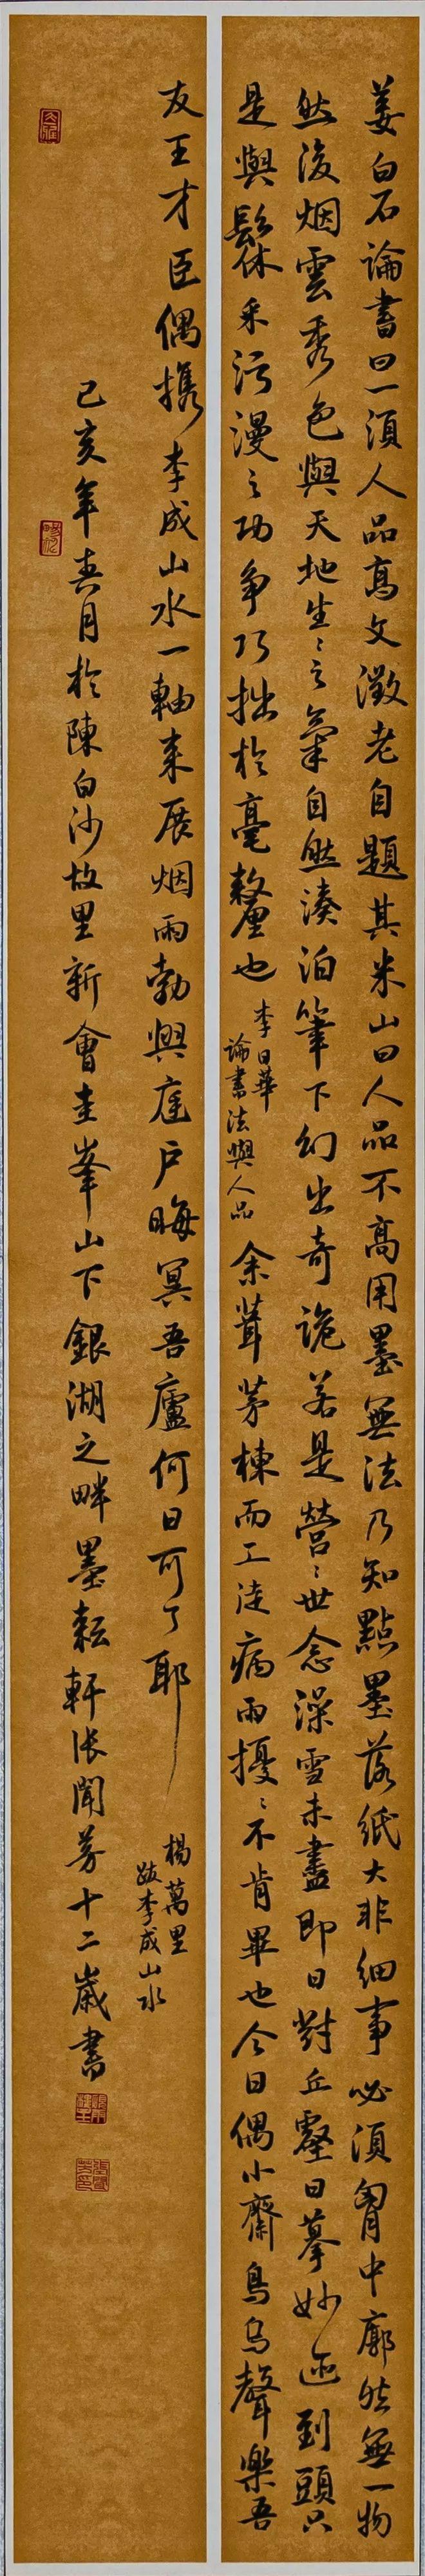 姜白石論書曰一須人品高文徵老自題其米山曰人品不高用墨無法乃知點墨落紙大非細事必須胷中廓然無一物
然後烟雲秀色與天地生〻之氣自然湊泊筆下幻出奇詭若是營〻世念澡雪未盡即日對丘壑日摹妙迹到頭只
是與髹采污漫之功争巧拙於毫釐也
李日華
論書法與人品
余葺茅棟而工徒病雨擾〻不肯畢也今日偶小齋鳥烏聲樂吾
友王才臣偶攜李成山水一軸来展烟雨勃興庭户晦冥吾廬何日可了耶
楊萬里
跋李成山水
己亥年春月於陳白沙故里新會圭峯山下銀湖之畔墨耘軒張聞芳十二歲書